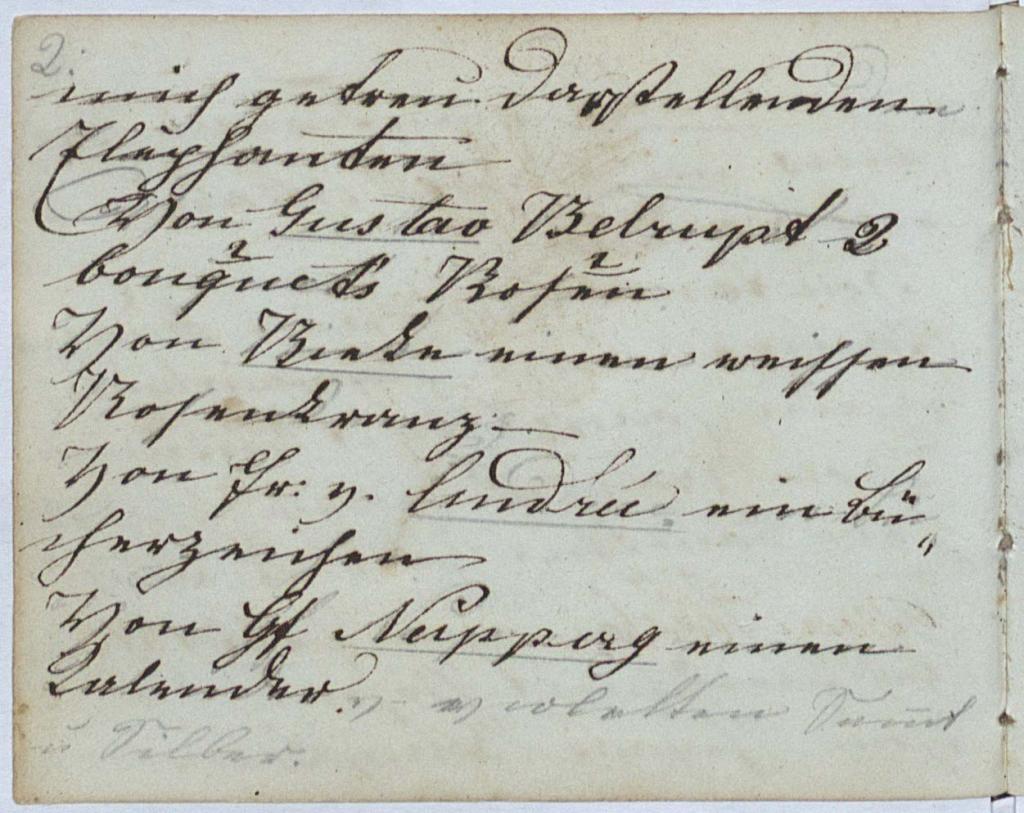 2.
mich getreu darstellenden
Elephanten
Von Gustav Belrupt 2
bouquets Rosen
Von Rieke einen weissen
Rosenkranz
Von Fr: v. Andrée ein Bü„
cherzeichen
Von Gf Neipperg einen
Kalender. v. violetten Samt
u Silber.